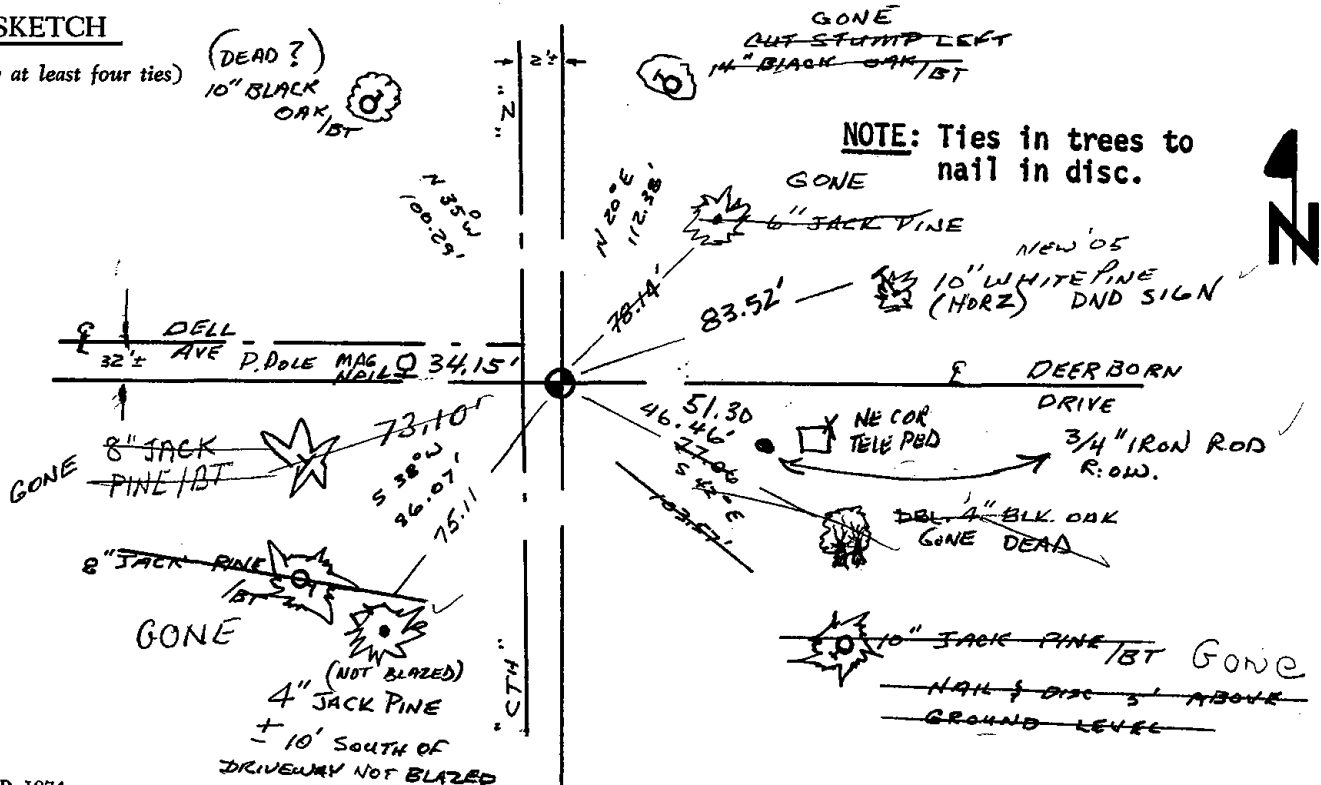 SKETCH
at least four ties)
(DEAD ?)
10" BLACK
OAK/BT
"Z"
2'±
GONE
CUT STUMP LEFT
14" BLACK OAK/BT
NOTE: Ties in trees to
nail in disc.
N
N 35° W
100.29'
N 20° E
112.38'
GONE
6" JACK PINE
78.14'
NEW '05
10" WHITE PINE
(HORZ) DND SIGN
83.52'
℄ DELL
AVE
32'±
P.POLE MAG
NAIL
34.15'
℄ DEERBORN
DRIVE
73.10'
8" JACK
PINE/BT
GONE
S 38° W
86.07'
75.11
51.30
46.46'
77.06
S 42° E
103.57'
NE COR
TELE PED
3/4" IRON ROD
R.O.W.
DBL. 4" BLK. OAK
GONE DEAD
8" JACK PINE
/BT
GONE
(NOT BLAZED)
4" JACK PINE
± 10' SOUTH OF
DRIVEWAY NOT BLAZED
"CTH"
10" JACK PINE/BT
Gone
NAIL & DISC 3' ABOVE
GROUND LEVEL